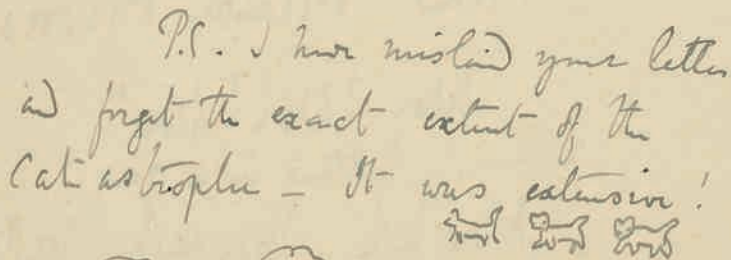 P.S. I have mislaid your letter
and forget the exact extent of the
Catastrophe – It was extensive!